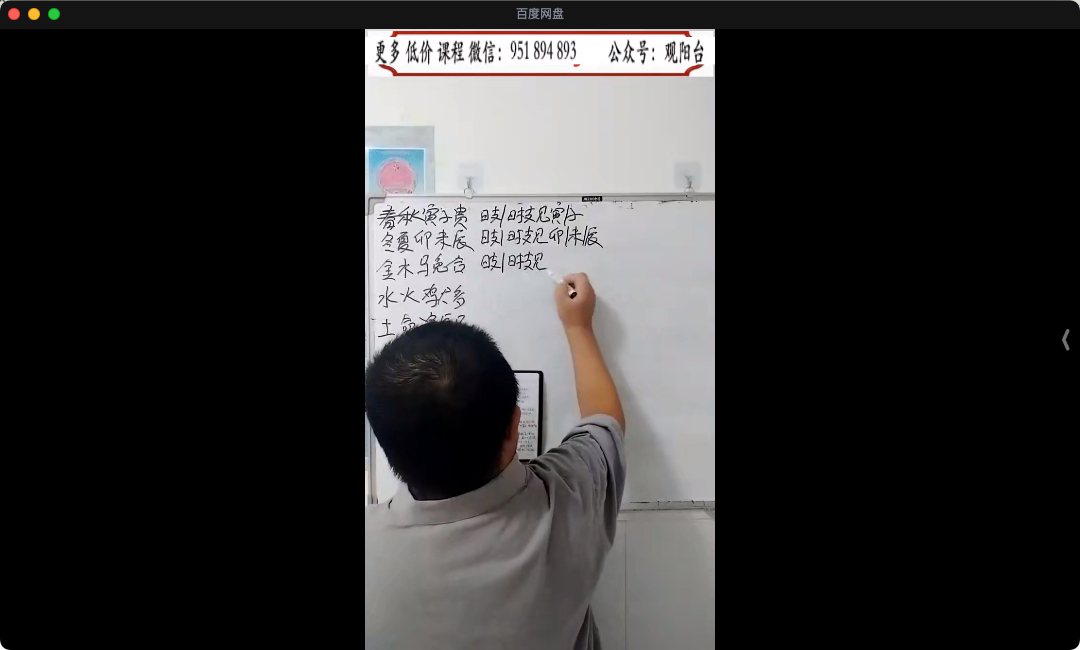 百度网盘
更多低价课程微信：951 894 893 公众号：观阳台
春秋寅子贵 日支/时支见寅/子
冬夏卯未辰 日支/时支见卯/未/辰
金木马兔合 日支/时支见
水火鸡犬多
土命